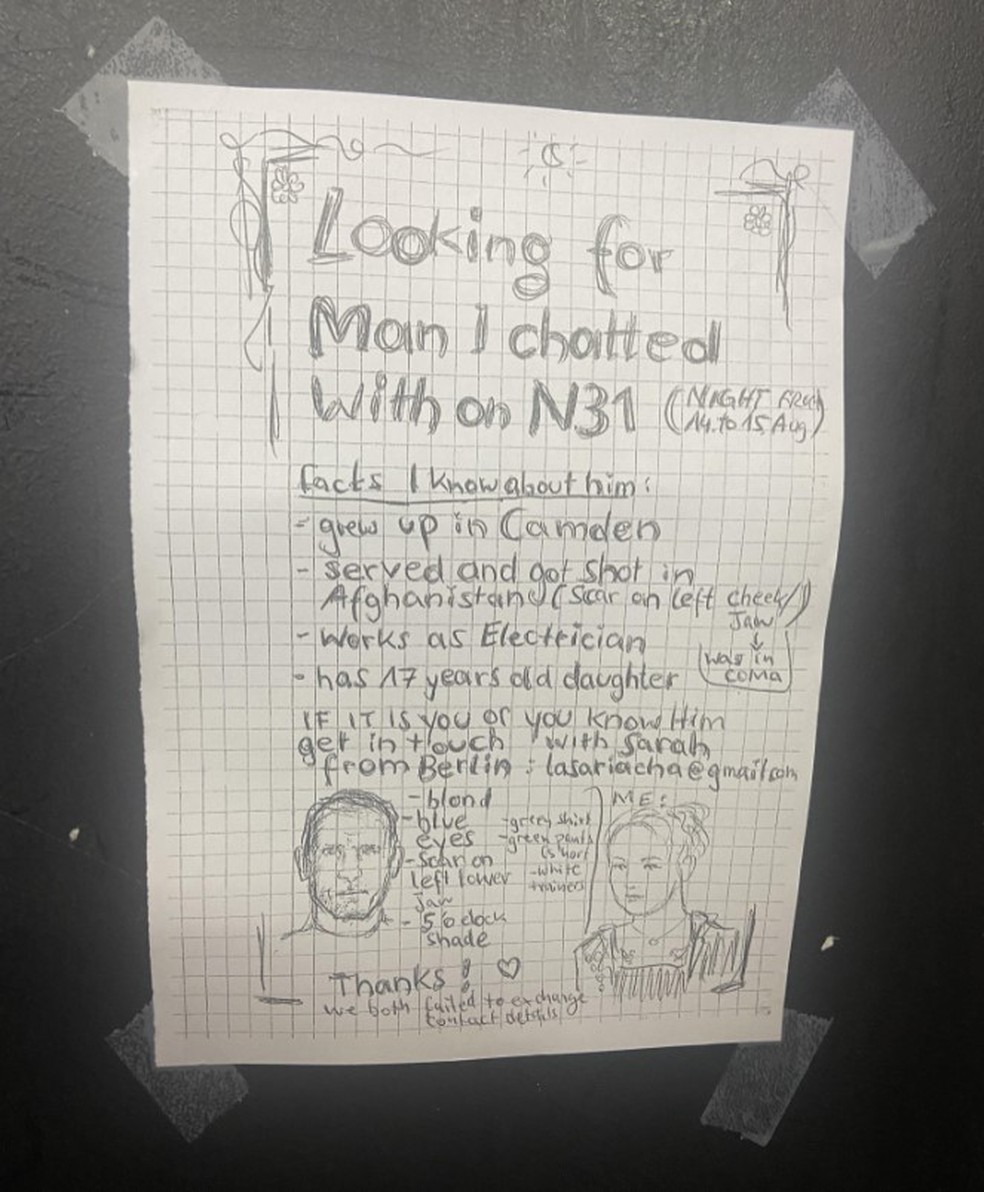 Looking for
Man I chatted
With on N31 (NIGHT FROM
14. to 15. Aug)
facts I know about him:
- grew up in Camden
- served and got shot in
Afghanistan (scar on left cheek/)
Jaw
was in
COMA
- Works as Electrician
- has 17 years old daughter
IF IT IS YOU or you know Him
get in touch with Sarah
from Berlin : lasariacha@gmail.com
- blond
- blue
eyes
- Scar on
left lower
jaw
- 5 o'clock
shade
- green shirt
- green pants
(short
- white
trainers
ME:
Thanks!
we both failed to exchange
contact details